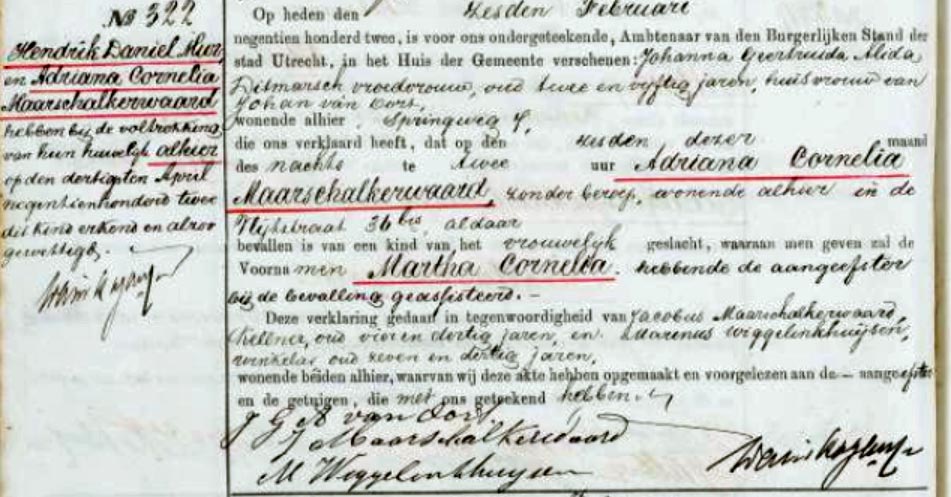 No 322
Hendrik Daniel Mur,
en Adriana Cornelia
Maarschalkerwaard
hebben bij de voltrekking
van hun huwelijk alhier
op den dertigsten April
negentienhonderd twee
dit kind erkend en alzoo
gewettigd.
Op heden den zesden Februari
negentien honderd twee, is voor ons ondergeteekende, Ambtenaar van den Burgerlijken Stand der
stad Utrecht, in het Huis der Gemeente verschenen: Johanna Geertruida Alida
Ditmarsch vroedvrouw, oud twee en vijftig jaren, huisvrouw van
Johan van Oort,
wonende alhier, Springweg
die ons verklaard heeft, dat op den zesden dezer maand
des nachts te twee uur Adriana Cornelia
Maarschalkerwaard, zonder beroep, wonende alhier in de
36 bis, aldaar
bevallen is van een kind van het vrouwelijk geslacht, waaraan men geven zal de
Voornamen Martha Cornelia. hebbende de aangeefster
bij de bevalling geassisteerd. —
Deze verklaring gedaan in tegenwoordigheid van Jacobus Maarschalkerwaard,
kellner, oud vier en dertig jaren, en Marinus Wiggelinkhuijsen,
winkelier oud zeven en dertig jaren,
wonende beiden alhier, waarvan wij deze akte hebben opgemaakt en voorgelezen aan de — aangeefster
en de getuigen, die met ons geteekend hebben.
J G A van Oort.
J Maarschalkerwaard
M Wiggelinkhuijsen